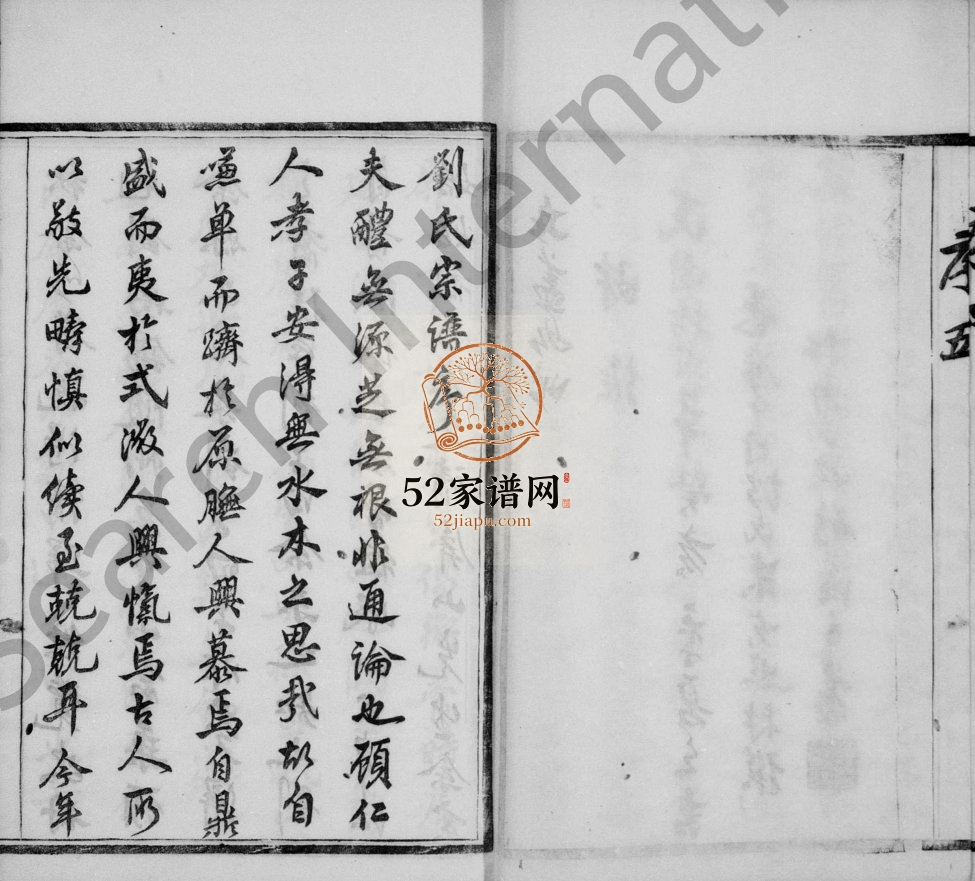 劉氏宗譜序
夫醴無源芝無根非通論也顧仁
人孝子安得無水木之思哉故自
單而躋於原膴人興慕焉自鼎
盛而夷於式微人興愾焉古人所
以敬先疇慎似續至兢兢耳今年
52家谱网
52jiapu.com
Search Internati